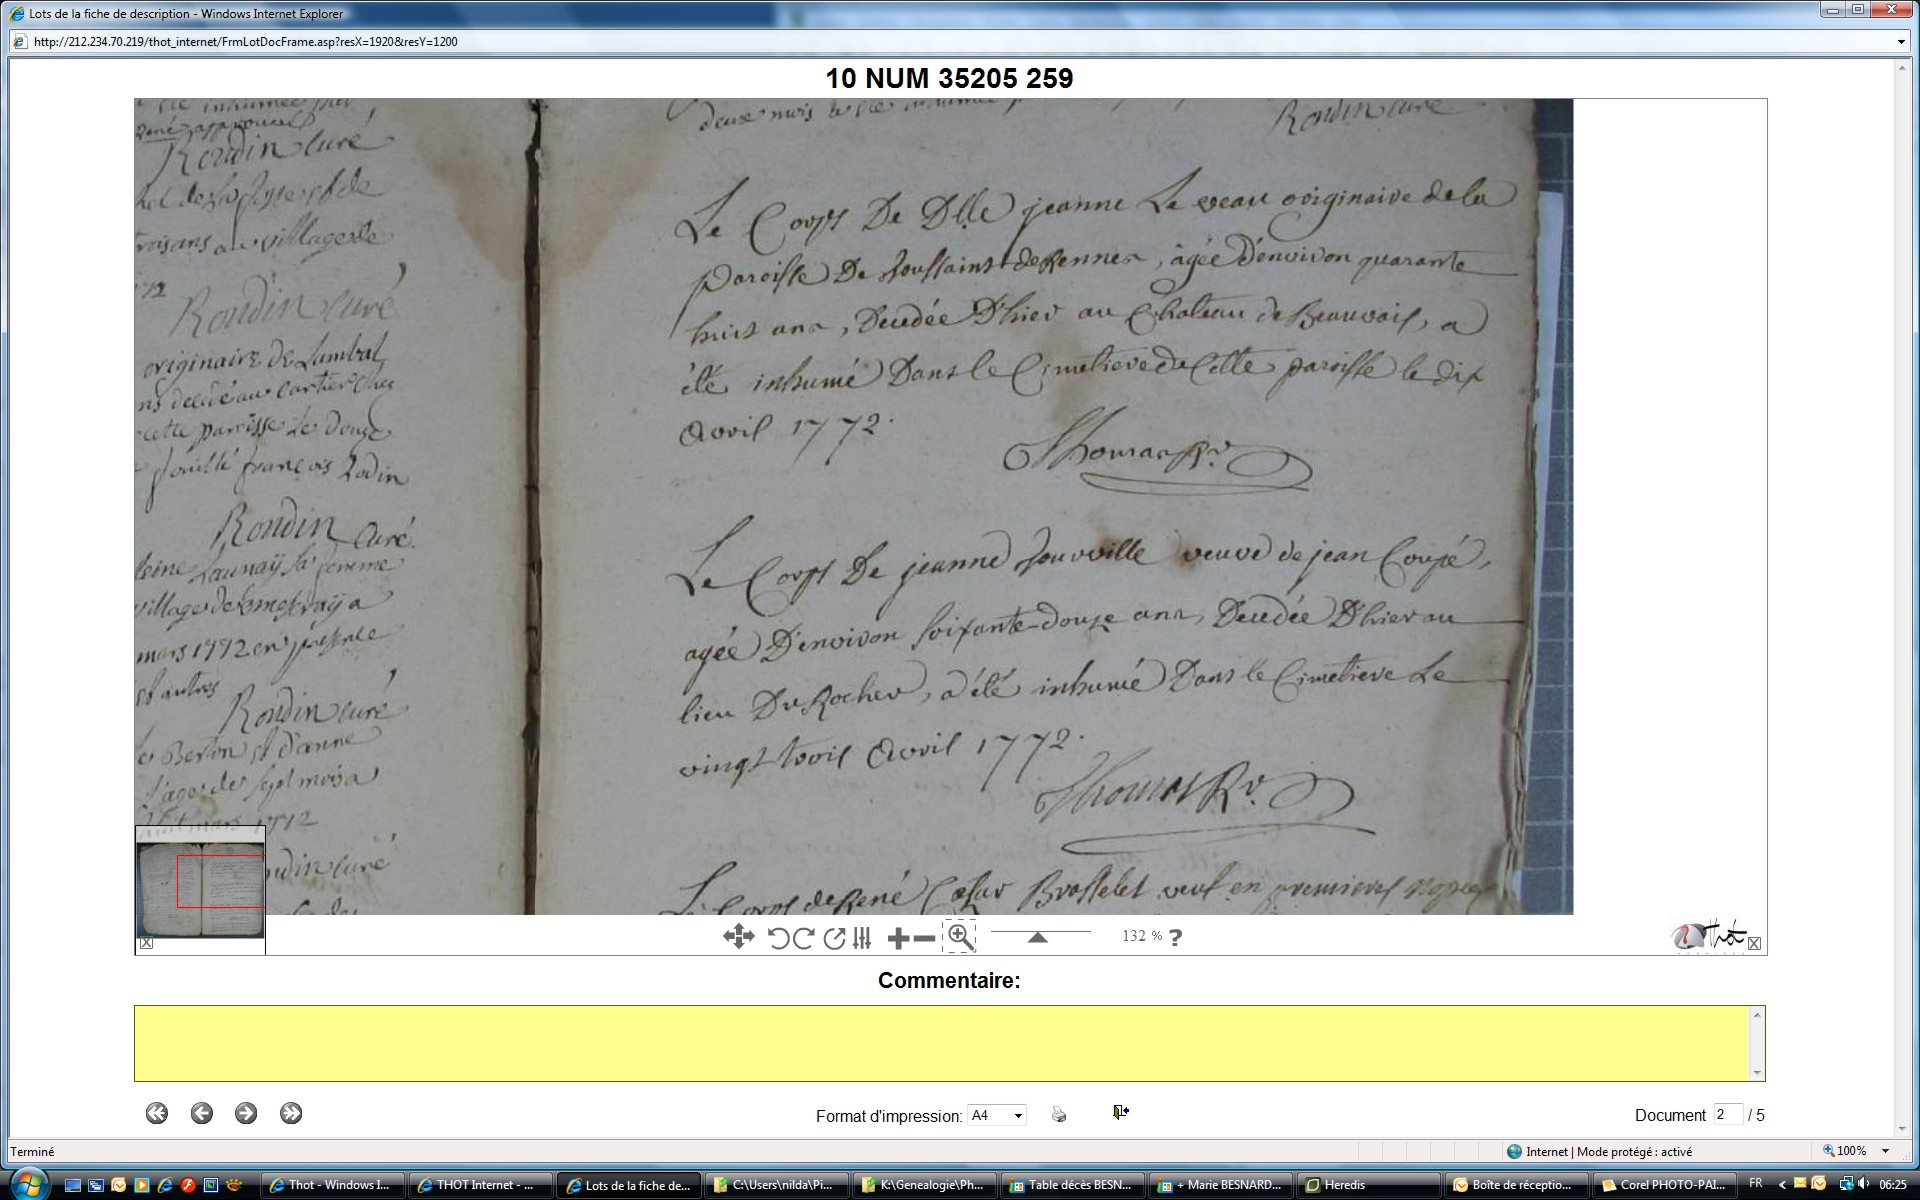 Lots de la fiche de description - Windows Internet Explorer
http://212.234.70.219/thot_internet/FrmLotDocFrame.asp?resX=1920&resY=1200
10 NUM 35205 259
Rondin curé
trois ans au village de
Rondin curé
originaire de Lambal
cette parroisse le douze
françois Rodin
Rondin curé
Launaÿ sa femme
mars 1772 en présence
et autres
Rondin curé
Berton et d'anne
l'age de sept mois a
mars 1772
curé
deux mois
Rondin curé
Le Corps De Dlle jeanne Le veau originaire de la
paroisse De toussaint de Rennes, âgée D'environ quarante
huit ans, Decedée D'hier au Château de Beauvais, a
été inhumé Dans le Cimetiere de Cette paroisse le dix
Avril 1772.
Thomas Rr.
Le Corps De jeanne Jouville veuve de jean Coupé,
agée D'environ soixante-douze ans, Decedée D'hier au
lieu Du Rocher, a été inhumé Dans le Cimetiere Le
vingt trois Avril 1772.
Thomas Rr.
Le Corps de René Cesar Brosselet veuf en premieres nopces
132 % ?
Thot
Commentaire:
Format d'impression: A4
Document 2 / 5
Terminé
Internet | Mode protégé : activé
100%
Thot - Windows I...
THOT Internet - ...
Lots de la fiche de...
C:\Users\nilda\Pi...
K:\Genealogie\Ph...
Table décès BESN...
+ Marie BESNARD...
Heredis
Boîte de réceptio...
Corel PHOTO-PAI...
FR
06:25